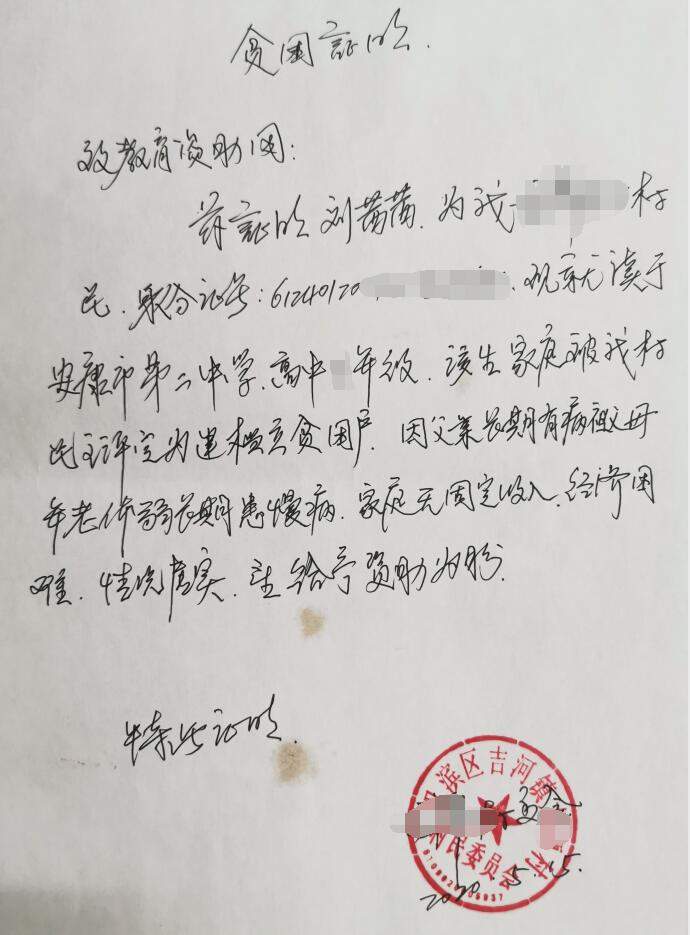 贫困証明.
致教育资助网:
兹証明刘茜茜.为我 村
民.身份证号:61240120 .现就读于
安康市第二中学.高中 年级.该生家庭被我村
民主评定为建档立贫困户.因父亲长期有病祖父母
年老体弱长期患慢病.家庭无固定收入.经济困
难.情况属实.望给予资助为盼.
特此证明.
滨区吉河镇 村
村民委员会
2020.5.15.